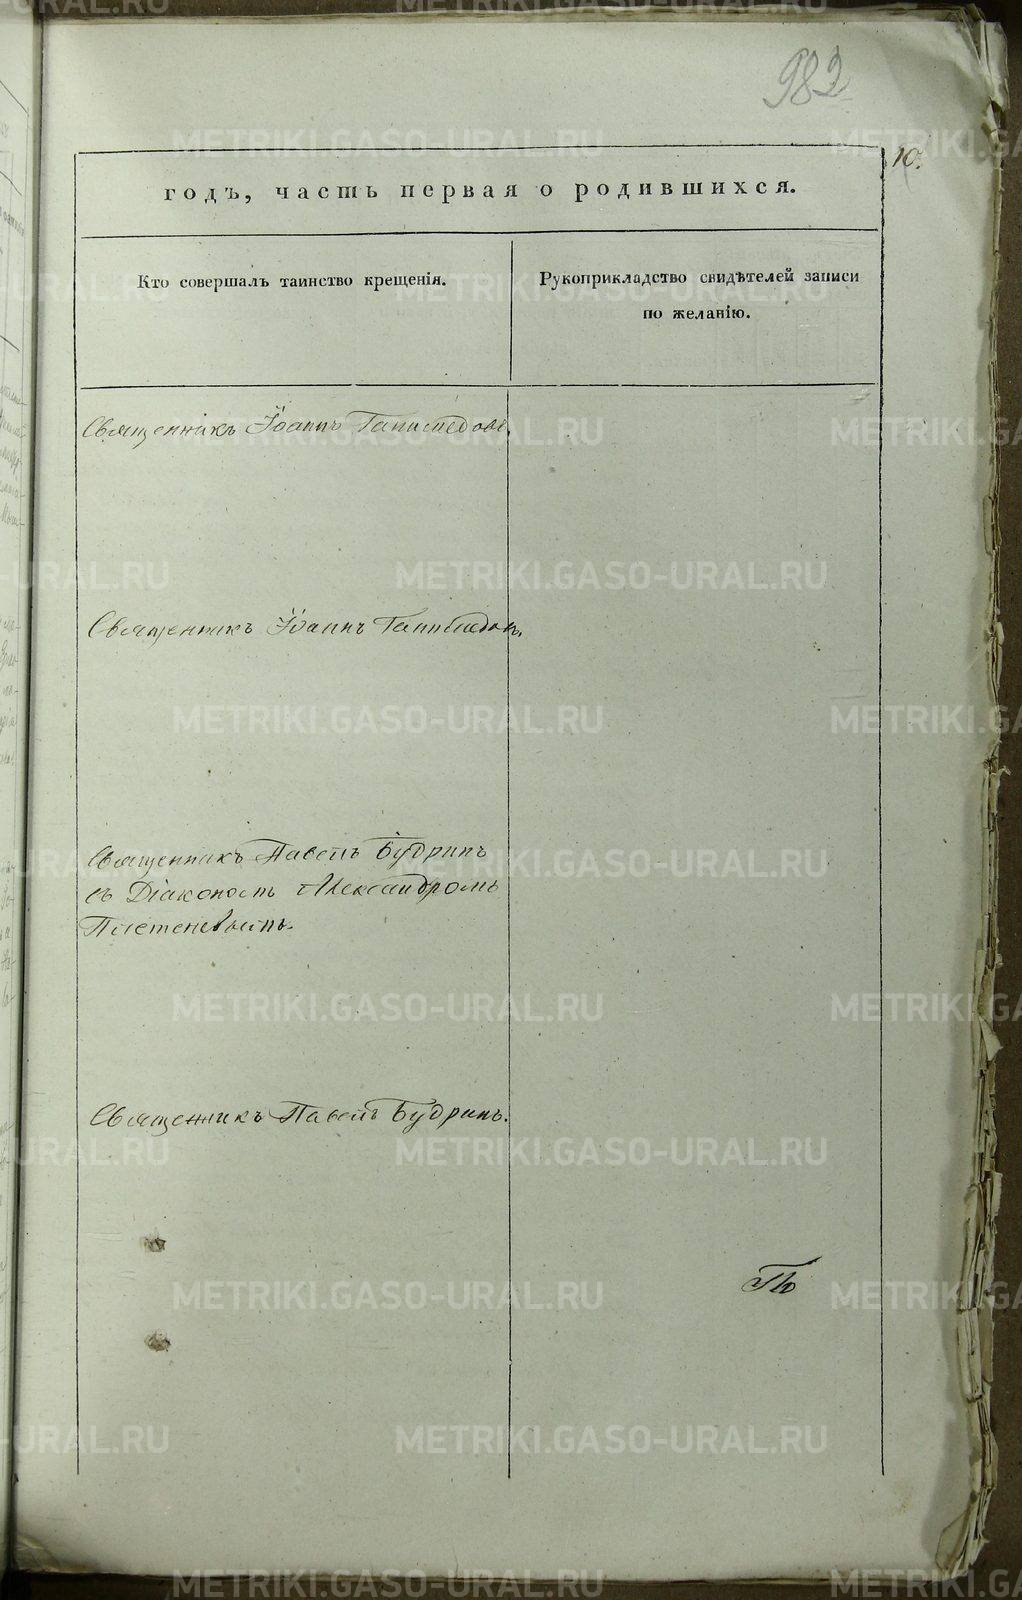 982
10.
годъ, часть первая о родившихся.
Кто совершалъ таинство крещенія.
Рукоприкладство свидѣтелей записи
по желанію.
Священникъ Іоаннъ Ганимедовъ.
Священникъ Іоаннъ Ганимедовъ.
Священникъ Павелъ Будринъ
съ Діакономъ Александромъ
Плетеневымъ.
Священникъ Павелъ Будринъ.
METRIKI.GASO-URAL.RU